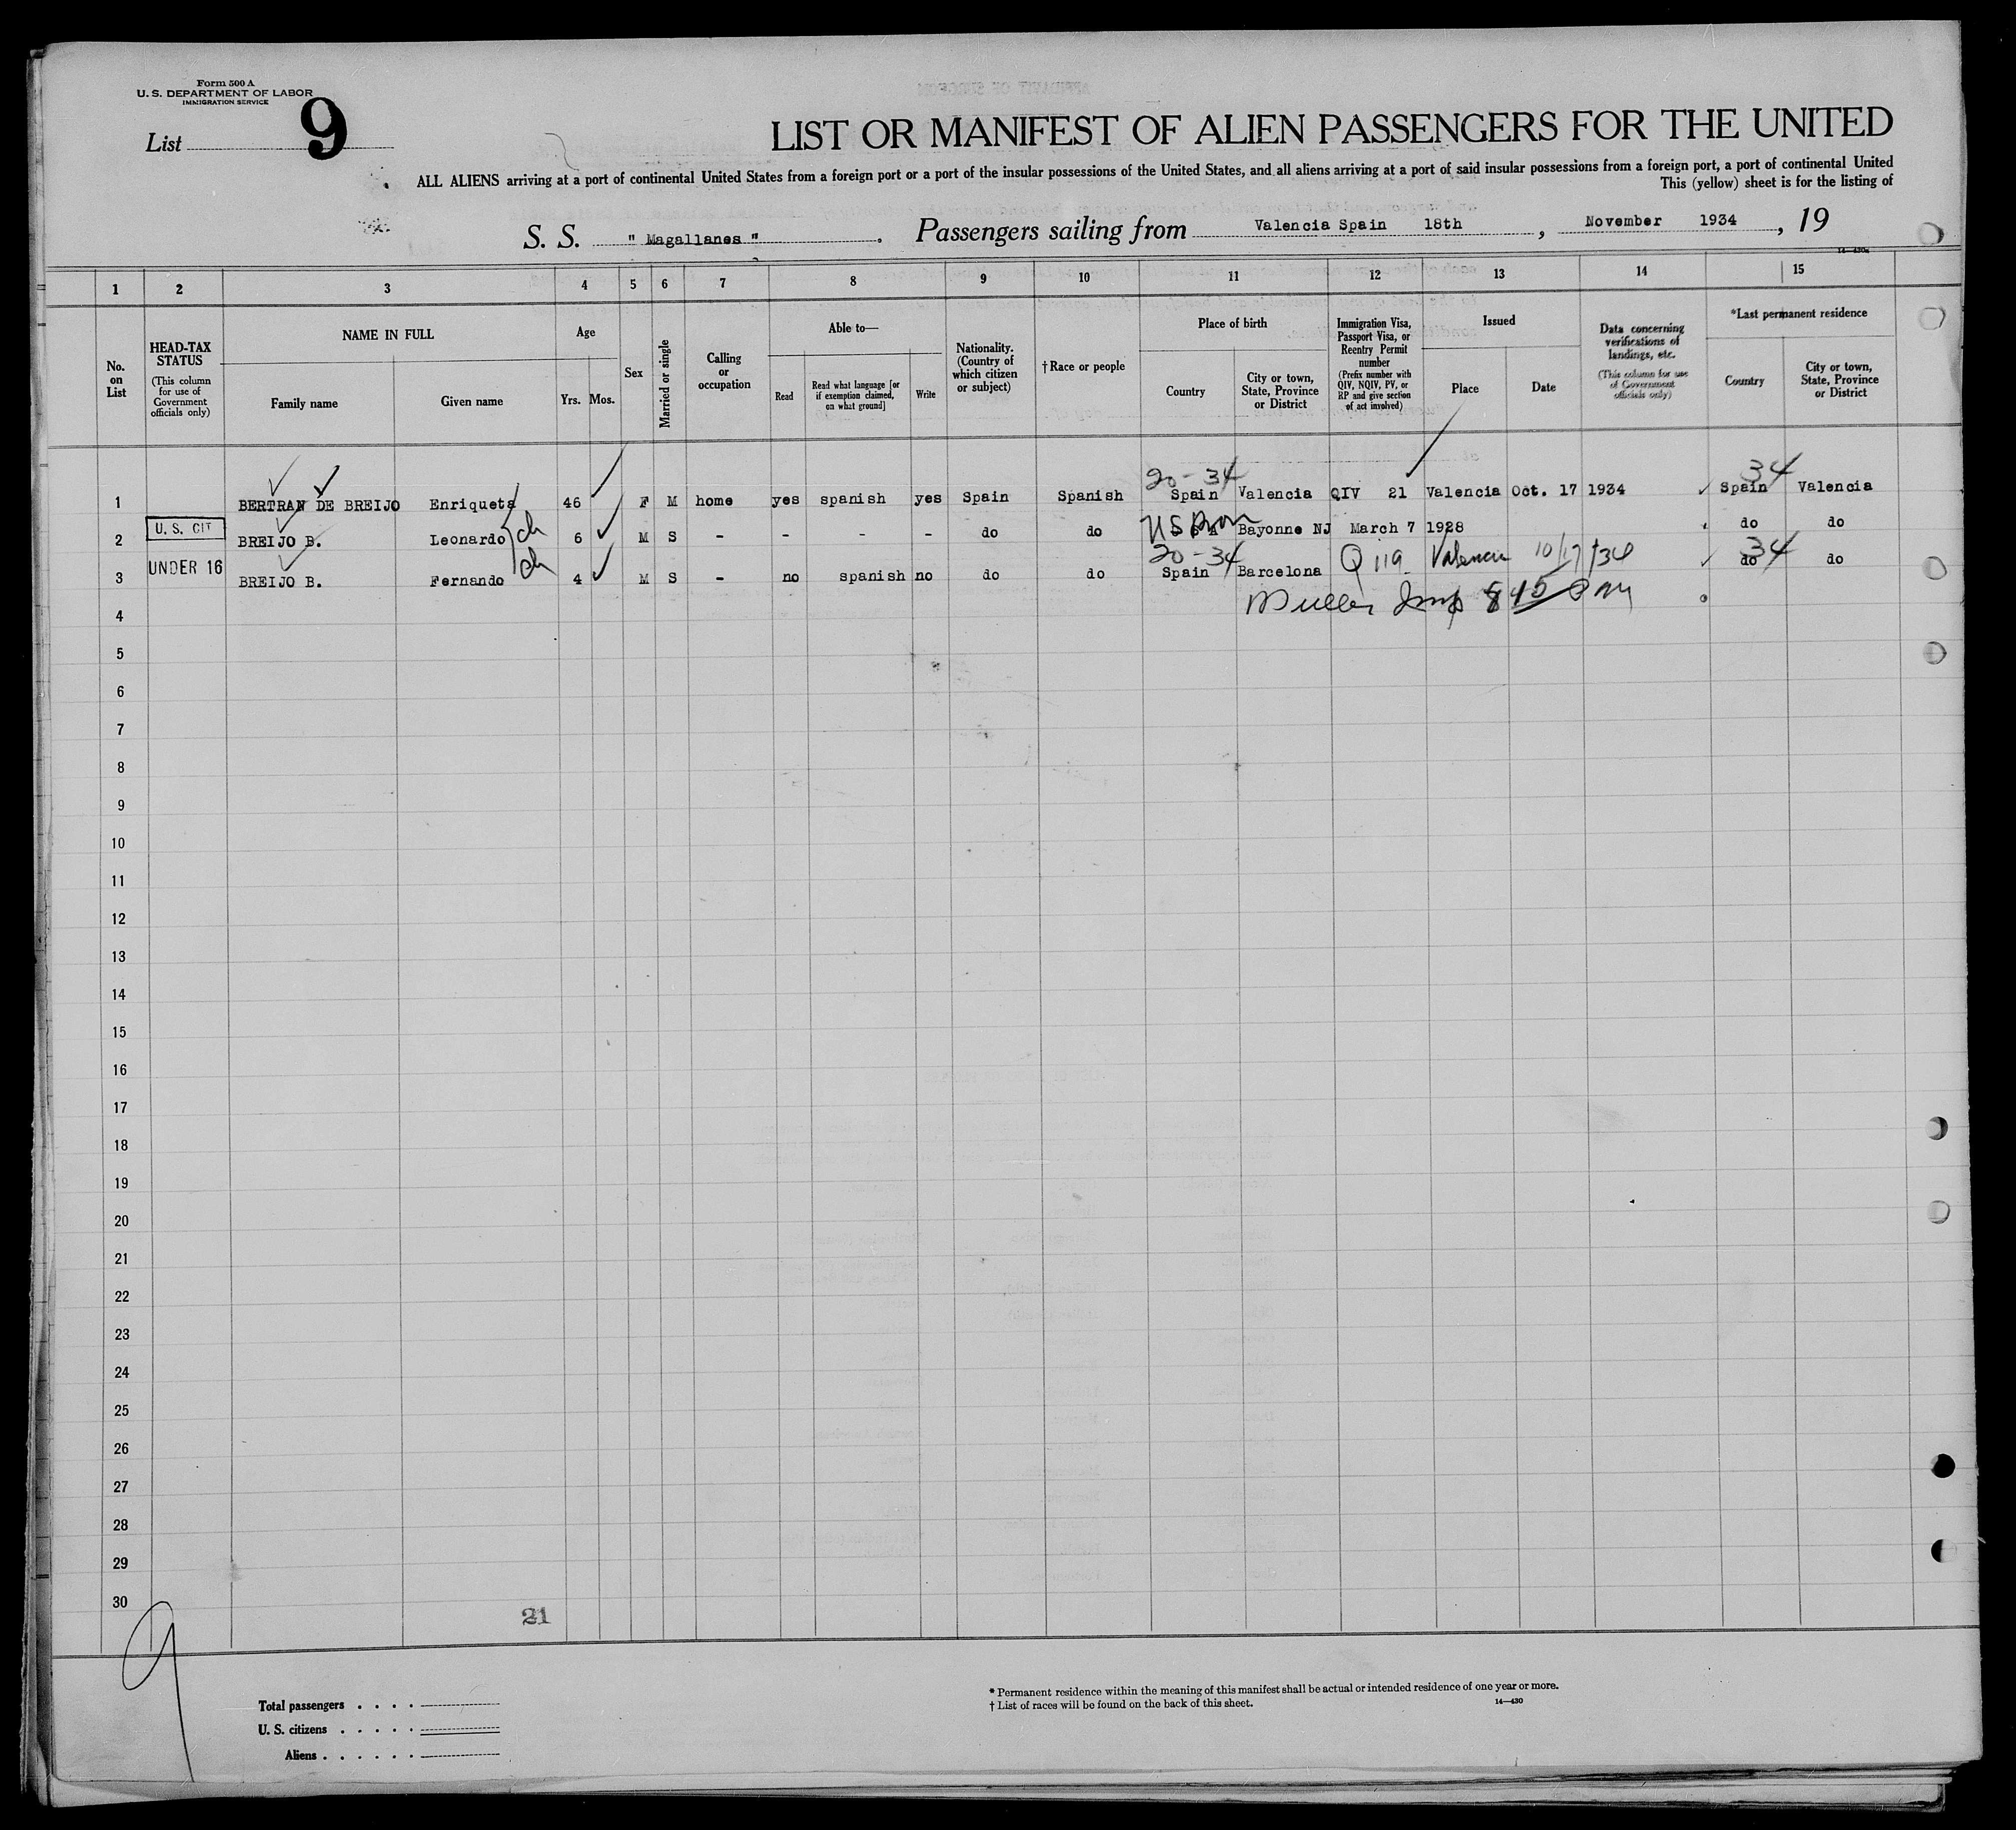 Form 500 A
U. S. DEPARTMENT OF LABOR
IMMIGRATION SERVICE
List 9
LIST OR MANIFEST OF ALIEN PASSENGERS FOR THE UNITED
ALL ALIENS arriving at a port of continental United States from a foreign port or a port of the insular possessions of the United States, and all aliens arriving at a port of said insular possessions from a foreign port, a port of continental United
This (yellow) sheet is for the listing of
S. S. " Magallanes " . Passengers sailing from Valencia Spain 18th , November 1934 , 19
14—430a
1 2 3 4 5 6 7 8 9 10 11 12 13 14 15
No. on List
HEAD-TAX STATUS
(This column for use of Government officials only)
NAME IN FULL
Family name
Given name
Age
Yrs. Mos.
Sex
Married or single
Calling or occupation
Able to—
Read
Read what language [or if exemption claimed, on what ground]
Write
Nationality. (Country of which citizen or subject)
† Race or people
Place of birth
Country
City or town, State, Province or District
Immigration Visa, Passport Visa, or Reentry Permit number
(Prefix number with QIV, NQIV, PV, or RP and give section of act involved)
Issued
Place
Date
Data concerning verifications of landings, etc.
(This column for use of Government officials only)
*Last permanent residence
Country
City or town, State, Province or District
20-34 34
1 BERTRAN DE BREIJO Enriqueta 46 F M home yes spanish yes Spain Spanish Spain Valencia QIV 21 Valencia Oct. 17 1934 Spain Valencia
2 U. S. CIT BREIJO B. Leonardo ch 6 M S - - - - do do US Born Bayonne NJ March 7 1928 do do
20-34 34
3 UNDER 16 BREIJO B. Fernando ch 4 M S - no spanish no do do Spain Barcelona Q 119 Valencia 10/17/34 do do
4 Muller Insp 8 45 PM
5
6
7
8
9
10
11
12
13
14
15
16
17
18
19
20
21
22
23
24
25
26
27
28
29
30
21
9
Total passengers . . . .
U. S. citizens . . . . .
Aliens . . . . . .
* Permanent residence within the meaning of this manifest shall be actual or intended residence of one year or more.
† List of races will be found on the back of this sheet. 14—430